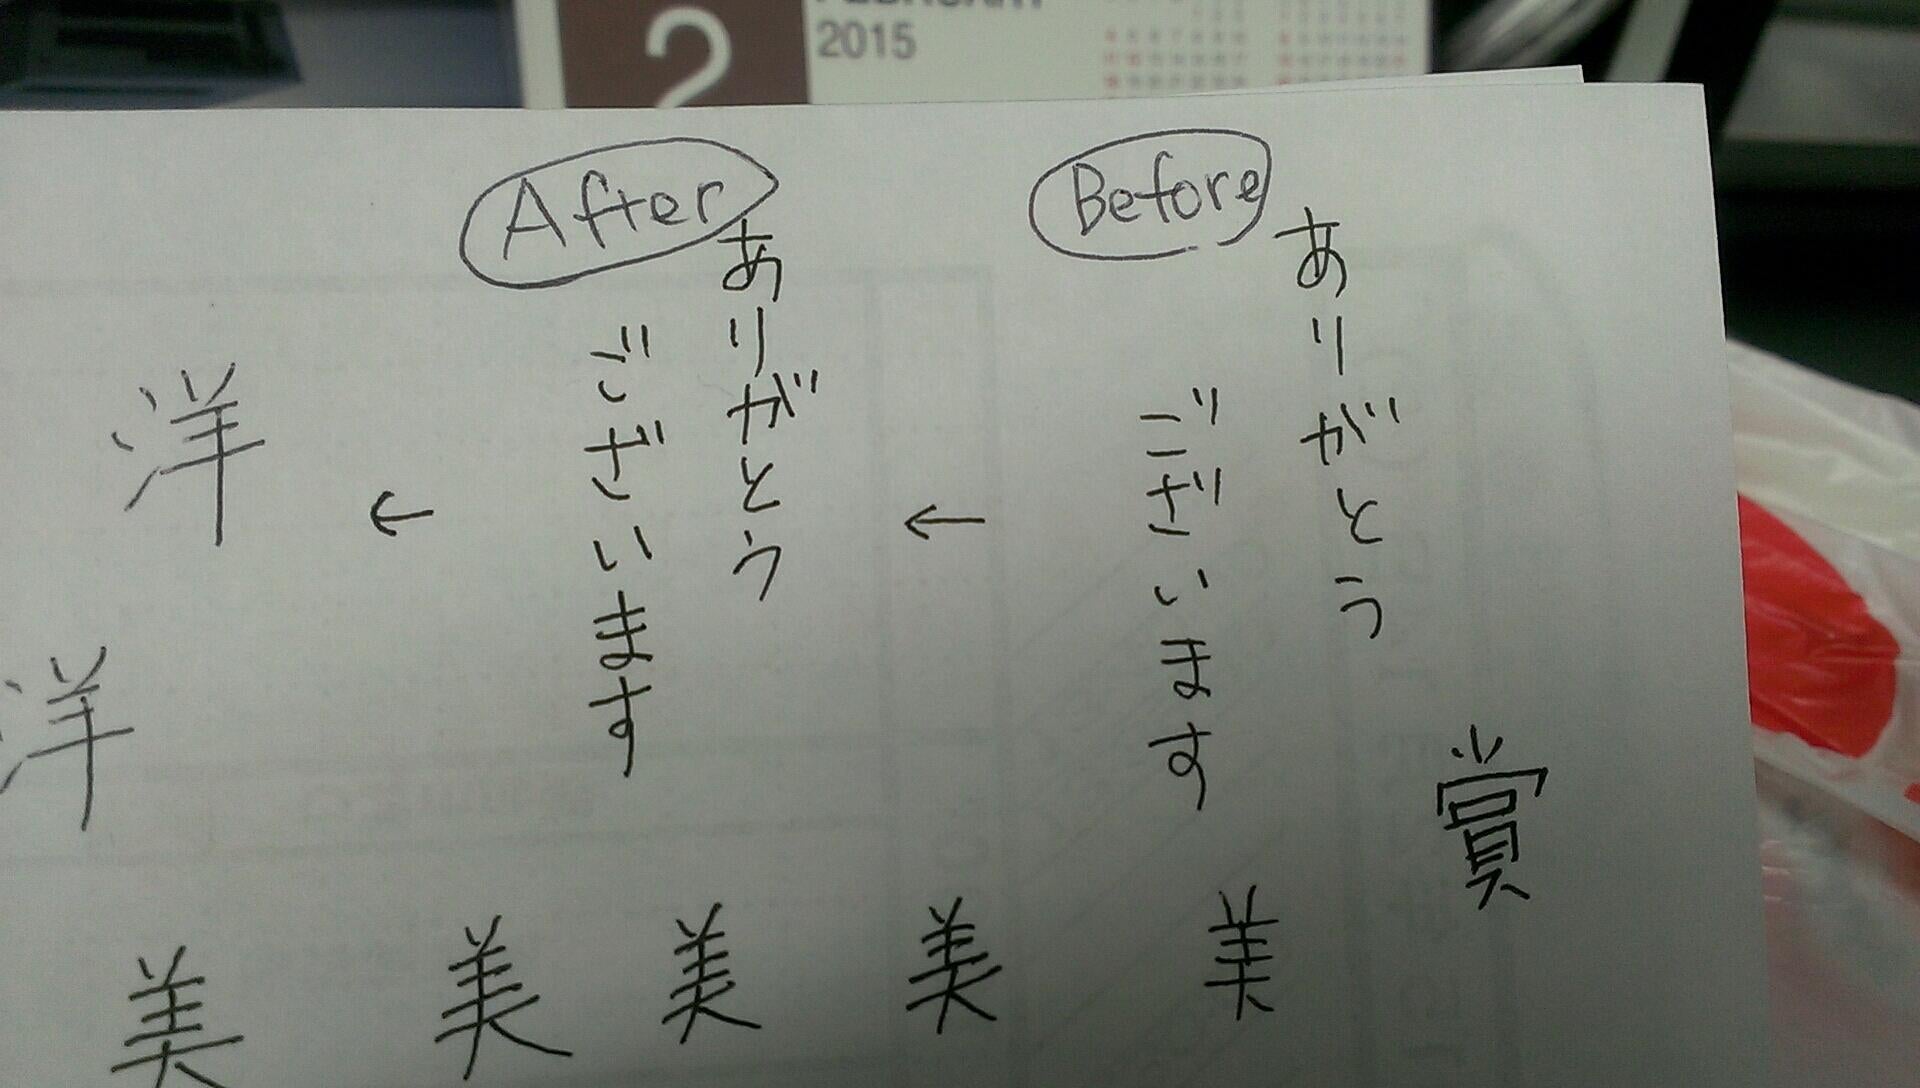 2
FEBRUARY
2015
Before
ありがとう
ございます
←
After
ありがとう
ございます
←
洋
洋
賞
美
美
美
美
美